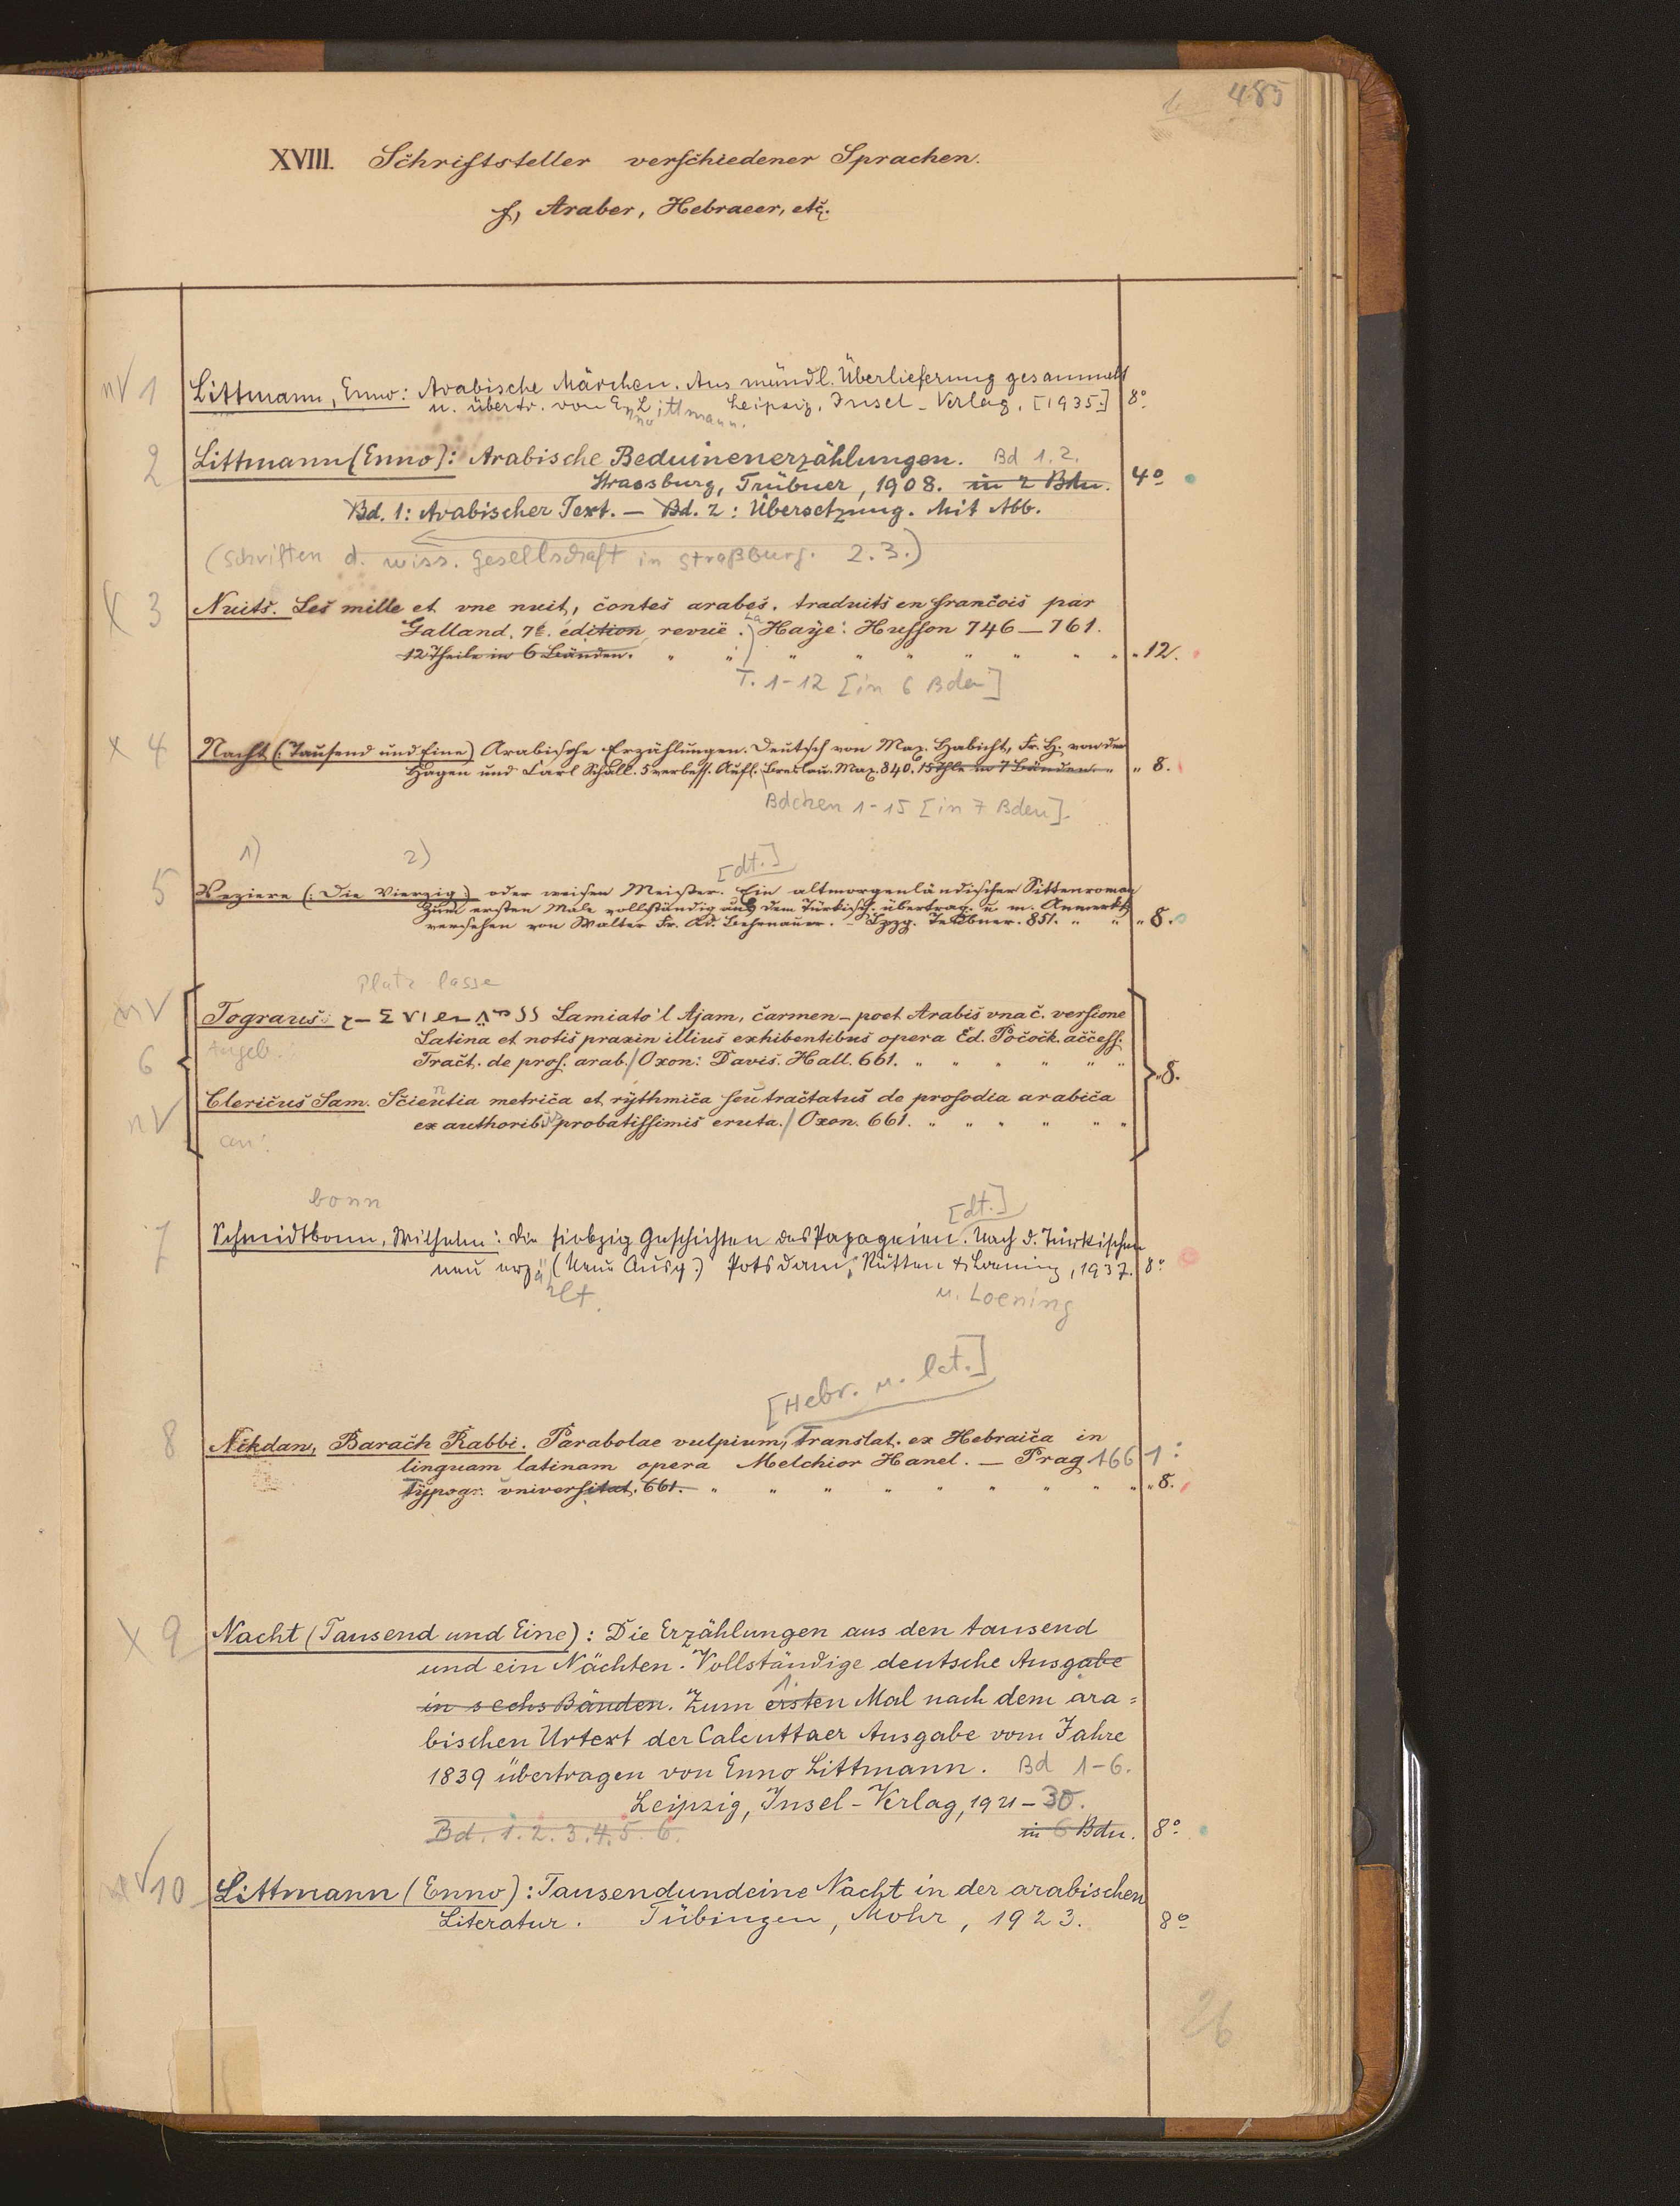 485
XVIII. Schriftsteller verschiedener Sprachen.
f, Araber, Hebraeer, etc.
nV 1 Littmann, Enno: Arabische Märchen. Aus mündl. Überlieferung gesammelt
u. übertr. von Enno Littmann. Leipzig, Insel-Verlag, [1935.] 8°
2 Littmann (Enno): Arabische Beduinenerzählungen. Bd 1.2.
Strassburg, Trübner, 1908. in 2 Bdn. 4°
Bd. 1: Arabischer Text. — Bd. 2: Übersetzung. Mit Abb.
(Schriften d. wiss. Gesellschaft in Straßburg. 2.3.)
X 3 Nuits. Les mille et une nuit, contes arabes. traduits en francois par
Galland. 7e. édition revuë. La Haÿe: Husson 746—761.
12 Theile in 6 Bänden. " " " " " " " " " " 12.
T. 1-12 [in 6 Bden]
X 4 Nacht (: Tausend und Eine) Arabische Erzählungen. Deutsch von Max. Habicht, Fr. H. von der
Hagen und Carl Schall. 5 verbess. Aufl. Breslau. Max. 840. 15 Thle in 7 Bänden. " " 8.
Bdchen 1-15 [in 7 Bden].
1) 2) [dt.]
5 Veziere (: Die Vierzig:) oder weisen Meister. Ein altmorgenländischer Sittenroman
Zum ersten Male vollständig aus dem Türkisch. übertrag. u. m. Anmerkg
versehen von Walter Fr. Ad. Behrnauer. – Lpzg. Teubner. 851. " " " 8.
Platz lasse
nV Tograus: Lamiato'l Ajam, carmen – poet Arabis una c. versione
6 Angeb. Latina et notis praxin illius exhibentibus opera Ed. Pocock. access.
Tract. de pros. arab. / Oxon: Davis. Hall. 661. " " " " " " " 8.
Clericus Sam. Scientia metrica et rÿthmica seu tractatus de prosodia arabica
nV an: ex authorib. probatissimis eruta. / Oxon. 661. " " " " " "
bonn [dt.]
7 Schmidtbonn, Wilhelm: Die siebzig Geschichten des Papageien. Nach d. Türkischen
neu erzählt. (Neue Ausg.) Potsdam, Rütten & Loening, 1937. 8°
u. Loening
[Hebr. u. lat.]
8 Nikdan, Barach Rabbi. Parabolae vulpium, Translat. ex Hebraica in
linguam latinam opera Melchior Hanel. — Prag 1661:
Typogr. universitat. 661. " " " " " " " " " " 8.
X 9 Nacht (Tausend und Eine): Die Erzählungen aus den tausend
und ein Nächten. Vollständige deutsche Ausgabe
in sechs Bänden. Zum ersten 1. Mal nach dem ara=
bischen Urtext der Calcuttaer Ausgabe vom Jahre
1839 übertragen von Enno Littmann. Bd 1-6.
Leipzig, Insel-Verlag, 1921-30.
Bd. 1. 2. 3. 4. 5. 6. in 6 Bdn. 8°
nV 10 Littmann (Enno): Tausendundeine Nacht in der arabischen
Literatur. Tübingen, Mohr, 1923. 8°
26